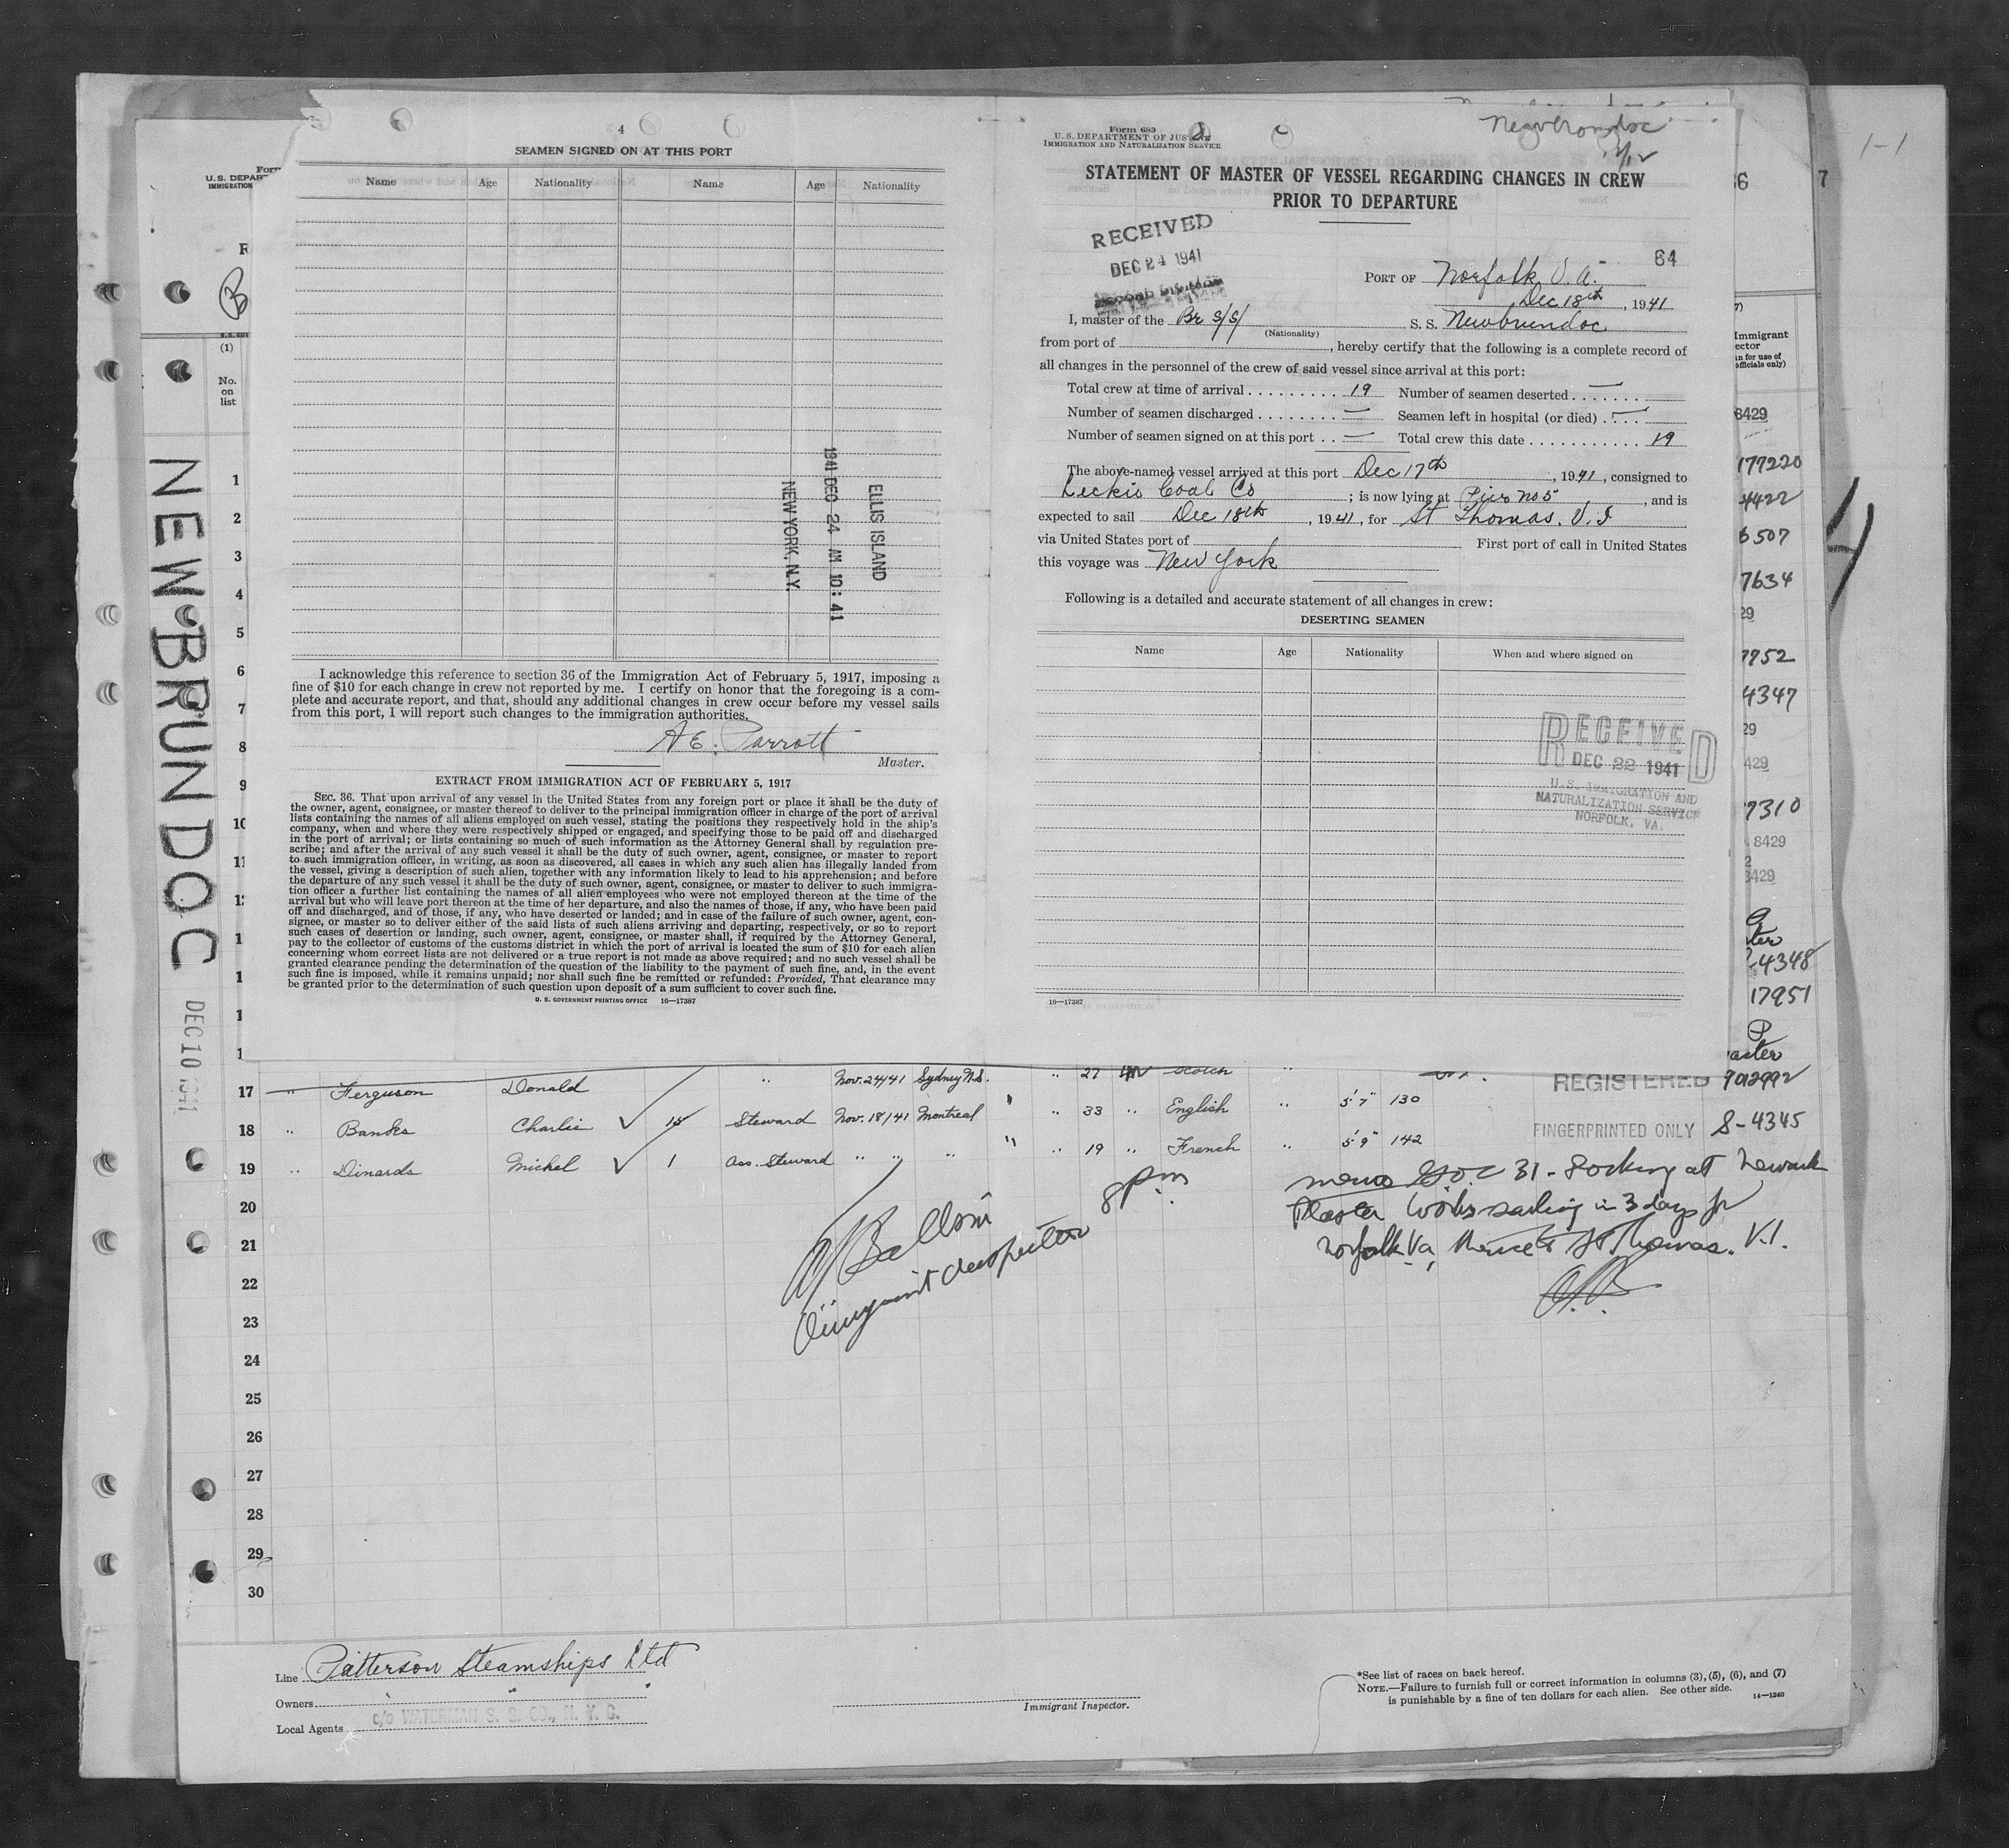 4
SEAMEN SIGNED ON AT THIS PORT
Name Age Nationality Name Age Nationality
ELLIS ISLAND
1941 DEC 24 AM 10:41
NEW YORK, N.Y.
I acknowledge this reference to section 36 of the Immigration Act of February 5, 1917, imposing a
fine of $10 for each change in crew not reported by me. I certify on honor that the foregoing is a com-
plete and accurate report, and that, should any additional changes in crew occur before my vessel sails
from this port, I will report such changes to the immigration authorities.
A E. Parrott
Master.
EXTRACT FROM IMMIGRATION ACT OF FEBRUARY 5, 1917
SEC. 36. That upon arrival of any vessel in the United States from any foreign port or place it shall be the duty of
the owner, agent, consignee, or master thereof to deliver to the principal immigration officer in charge of the port of arrival
lists containing the names of all aliens employed on such vessel, stating the positions they respectively hold in the ship's
company, when and where they were respectively shipped or engaged, and specifying those to be paid off and discharged
in the port of arrival; or lists containing so much of such information as the Attorney General shall by regulation pre-
scribe; and after the arrival of any such vessel it shall be the duty of such owner, agent, consignee, or master to report
to such immigration officer, in writing, as soon as discovered, all cases in which any such alien has illegally landed from
the vessel, giving a description of such alien, together with any information likely to lead to his apprehension; and before
the departure of any such vessel it shall be the duty of such owner, agent, consignee, or master to deliver to such immigra-
tion officer a further list containing the names of all alien employees who were not employed thereon at the time of the
arrival but who will leave port thereon at the time of her departure, and also the names of those, if any, who have been paid
off and discharged, and of those, if any, who have deserted or landed; and in case of the failure of such owner, agent, con-
signee, or master so to deliver either of the said lists of such aliens arriving and departing, respectively, or so to report
such cases of desertion or landing, such owner, agent, consignee, or master shall, if required by the Attorney General,
pay to the collector of customs of the customs district in which the port of arrival is located the sum of $10 for each alien
concerning whom correct lists are not delivered or a true report is not made as above required; and no such vessel shall be
granted clearance pending the determination of the question of the liability to the payment of such fine, and, in the event
such fine is imposed, while it remains unpaid; nor shall such fine be remitted or refunded: Provided, That clearance may
be granted prior to the determination of such question upon deposit of a sum sufficient to cover such fine.
U. S. GOVERNMENT PRINTING OFFICE 16—17387
Form 689
U. S. DEPARTMENT OF JUSTICE
IMMIGRATION AND NATURALIZATION SERVICE
STATEMENT OF MASTER OF VESSEL REGARDING CHANGES IN CREW
PRIOR TO DEPARTURE
RECEIVED
DEC 24 1941
64
PORT OF Norfolk V.A.
Dec 18th, 1941
I, master of the Br S/S/ S. S. Newbrundoc
(Nationality)
from port of , hereby certify that the following is a complete record of
all changes in the personnel of the crew of said vessel since arrival at this port:
Total crew at time of arrival . . . . . . . . . 19 Number of seamen deserted . . . . . . . —
Number of seamen discharged . . . . . . . . — Seamen left in hospital (or died) . . . . —
Number of seamen signed on at this port . . — Total crew this date . . . . . . . . . . . 19
The above-named vessel arrived at this port Dec 17th, 1941, consigned to
Leckie Coal Co ; is now lying at Pier no 5, and is
expected to sail Dec 18th, 1941, for St Thomas. V.I
via United States port of First port of call in United States
this voyage was New York
Following is a detailed and accurate statement of all changes in crew:
DESERTING SEAMEN
Name Age Nationality When and where signed on
RECEIVED
DEC 22 1941
U. S. IMMIGRATION AND
NATURALIZATION SERVICE
NORFOLK, VA.
16—17387
NEWBRUNDOC
DEC 10 1941
(1)
No.
on
list
1
2
3
4
5
6
7
8
9
10
11
36 7
1-1
Immigrant
8429
177220
4422
6507
7634
29
7952
4347
29
429
7310
8429
3429
-4348
17951
17 " Ferguson Donald " Nov. 24/41 Sydney N.S. " 27 Scotch " REGISTERED
18 " Banks Charlie ✓ 15 Steward Nov. 18/41 Montreal " " 33 " English " 5'7" 130 FINGERPRINTED ONLY S-4345
19 " Dinards Michel ✓ 1 Ass. Steward " " " " " 19 " French " 5'9" 142
8 pm
20
21
22
23
24
25
26
27
28
29
30
Docking at Newark
Plaster Works sailing in 3 days for
Norfolk Va, thence to St Thomas. V.I.
Line Patterson Steamships Ltd
Owners " " "
Local Agents c/o WATERMAN S. S. CO., N. Y. C.
Immigrant Inspector.
*See list of races on back hereof.
NOTE.—Failure to furnish full or correct information in columns (3), (5), (6), and (7)
is punishable by a fine of ten dollars for each alien. See other side. 14—1240